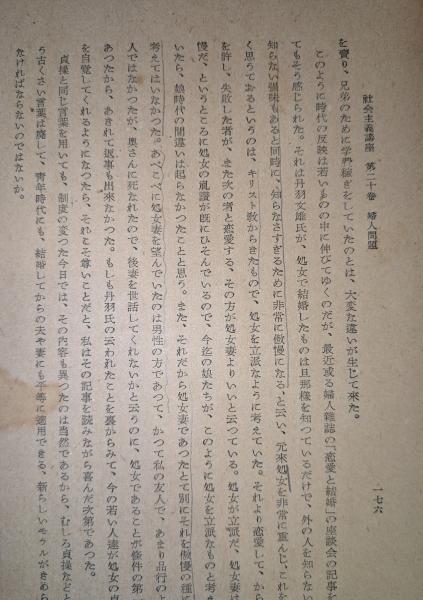 社会主義講座　第二十巻　婦人問題
一七六
を賣り、兄弟のために学費稼ぎをしていたのとは、大変な違いが生じて来た。
このように時代の反映は若いものの中に伸びてゆくのだが、最近或る婦人雑誌の「恋愛と結婚」の座談会の記事を
てもそう感じられた。それは丹羽文雄氏が、処女で結婚したものは旦那様を知つているだけで、外の人を知らない
知らない強味もあると同時に、知らなさすぎるために非常に傲慢になる、と云い、元来処女を非常に重んじ、これを
く思つておるというのは、キリスト教からきたもので、処女を立派なように考えていた。それより恋愛して、から
を許し、失敗した者が、また次の者と恋愛する、その方が処女妻よりいいと云つている。処女が立派だ、処女妻
慢だ、というところに処女の亀讃が既にひそんでいるので、今迄の娘たちが、このように処女を立派なものと考え
いたら、娘時代の間違いは起らなかつたことと思う。また、それだから処女妻であつたとて別にそれを傲慢の種
考えてはいなかつた。あべこべに処女妻を望んでいたのは男性の方であつて、かつて私の友人で、あまり品行の
人ではなかつたが、奥さんに死なれたので、後妻を世話してくれないかと云うのに、処女であることが条件の第
あつたから、あきれて返事も出来なかつた。もしも丹羽氏の云われたことを裏からみて、今の若い人達が処女の
を自覚してくれるようになつたら、それこそ尊いことだと、私はその記事を読みながら喜んだ次第であつた。
貞操と同じ言葉を用いても、制度の変つた今日では、その内容も異つたのは当然であるから、むしろ貞操などと
う古くさい言葉は廃して、青年時代にも、結婚してからの夫や妻にも平等に適用できる、新らしいモラルがきめら
なければならないのではないか。